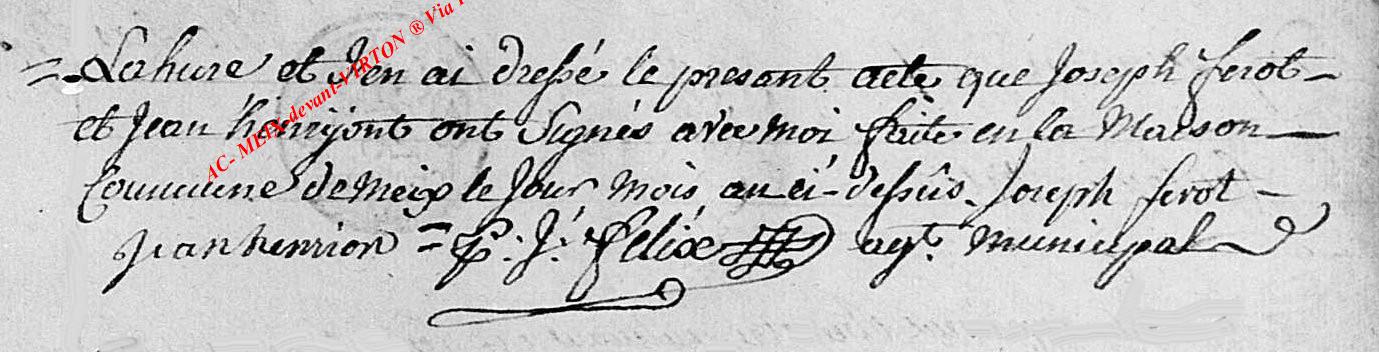 = Lahure et J'en ai dressé le present acte que Joseph ferot -
et Jean henrijont ont Signés avec moi faite en la Maison
Commune de Meix le Jour Mois an ci-dessûs. Joseph ferot -
jean henrion = P. J. felix agt. municipal
AC- MEIX-devant-VIRTON ® Via